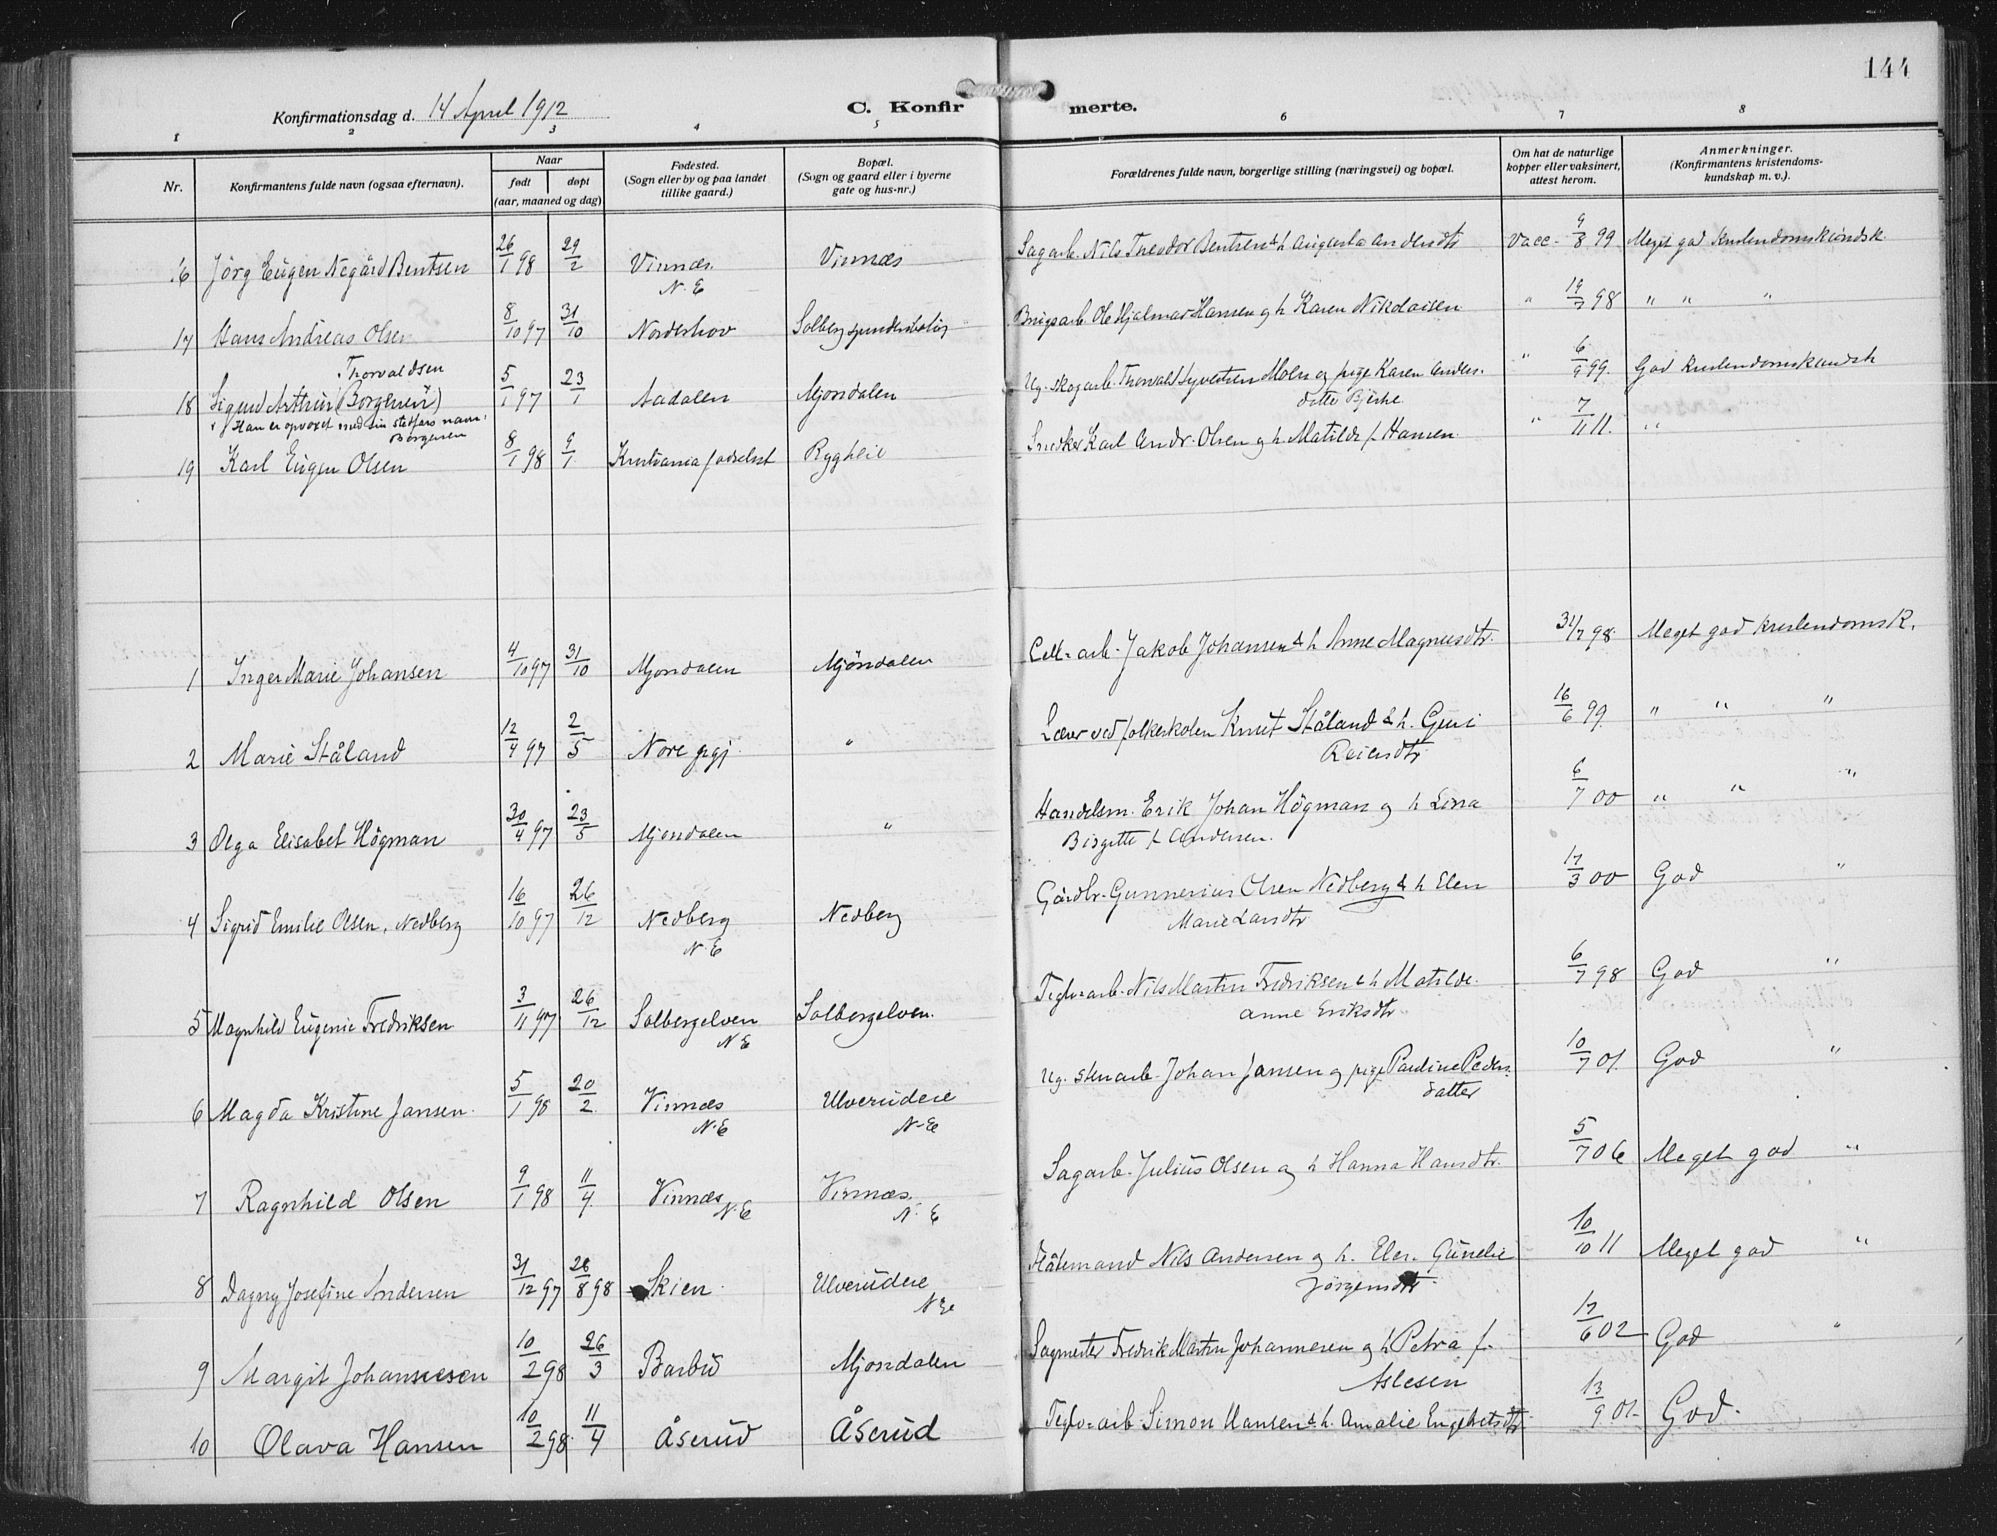 144
Konfirmationsdag d. 14 April 1912
C. Konfirmerte.
1 2 3 4 5 6 7 8
Nr.
Konfirmantens fulde navn (ogsaa efternavn).
Naar
født døpt
(aar, maaned og dag)
Fødested.
(Sogn eller by og paa landet
tillike gaard.)
Bopæl.
(Sogn og gaard eller i byerne
gate og hus-nr.)
Forældrenes fulde navn, borgerlige stilling (næringsvei) og bopæl.
Om hat de naturlige
kopper eller vaksinert,
attest herom.
Anmerkninger.
(Konfirmantens kristendoms-
kundskap m. v.).
16 Jörg Eugen Negård Bentsen 26/1 98 29/2 Vinnæs N.E Vinnæs Sagarb. Nils Theodor Bentsen & h Augusta Andersdtr Vacc. 9/8 99 Meget god kristendomskundsk.
17 Hans Andreas Olsen 8/10 97 31/10 Norderhov Solberg Brugsarb. Ole Hjalmar Hansen og h Karen Nikolaisen " 19/7 98 " " "
Thorvaldsen
18 Sigurd Arthur (Borgersen) 5/1 97 23/1 Aadalen Mjøndalen Ug. skogarb. Thorvald Syvertsen Moen og pige Karen Anders-
datter Bjerke " 6/9 99. God kristendomskundsk
Han er opvoxet med sin stedfars navn:
Borgersen
19 Karl Eugen Olsen 8/1 98 9/1 Kristiania fødselsst Ryghkol Snedker Karl Andr. Olsen og h. Matilde f. Hansen. " 7/11 11. "
1 Inger Marie Johansen 4/10 97 31/10 Mjøndalen Mjöndalen Cell-arb. Jakob Johansen & h Anne Magnusdtr. 31/7 98. Meget god kristendomsk.
2 Marie Ståland 12/4 97 2/5 Nore prgj. " Lærer ved folkeskolen Knut Ståland & h. Guri
Reiersdtr. 16/6 99 " " "
3 Olga Elisabet Högman 30/4 97 23/5 Mjøndalen " Handelsm. Erik Johan Högman og h Lina
Birgitte f. Andersen. 6/7 00 " " "
4 Sigrid Emilie Olsen, Nedberg 16/10 97 26/12 Nedberg N.E Nedberg Gårdbr. Gunnerius Olsen Nedberg & h Elen
Marie Larsdtr. 17/3 00 God "
5 Magnhild Eugenie Fredriksen 3/11 97 26/12 Solbergelven N.E Solbergelven. Teglv-arb. Nils Martin Fredriksen & h Matilde
Anne Eriksdtr. 6/7 98 God "
6 Magda Kristine Jansen. 5/1 98 20/2 Vinnæs N.E Ulverudeie N.E Ug. stenarb. Johan Jansen og pige Pauline Peders-
datter 10/7 01. God "
7 Ragnhild Olsen 9/1 98 11/4 Vinnæs N.E Vinnæs. N.E Sagarb. Julius Olsen og h Hanna Hansdtr. 5/7 06 Meget god "
8 Dagny Josefine Andersen 31/12 97 28/8 98 Skien Ulverudeie N.E Flåtemand Nils Andersen og h. Elen Gunelie
Jörgensdtr. 10/10 11 Meget god "
9 Margit Johannesen 10/2 98 26/3 Barbu Mjøndalen Sagmester Fredrik Martin Johannesen og h Petra f.
Aslesen 17/6 02 God "
10 Olava Hansen 10/2 98. 11/4 Åserud Åserud Teglv-arb. Simon Hansen & h. Amalie Engebretsdtr 13/9 01. God.